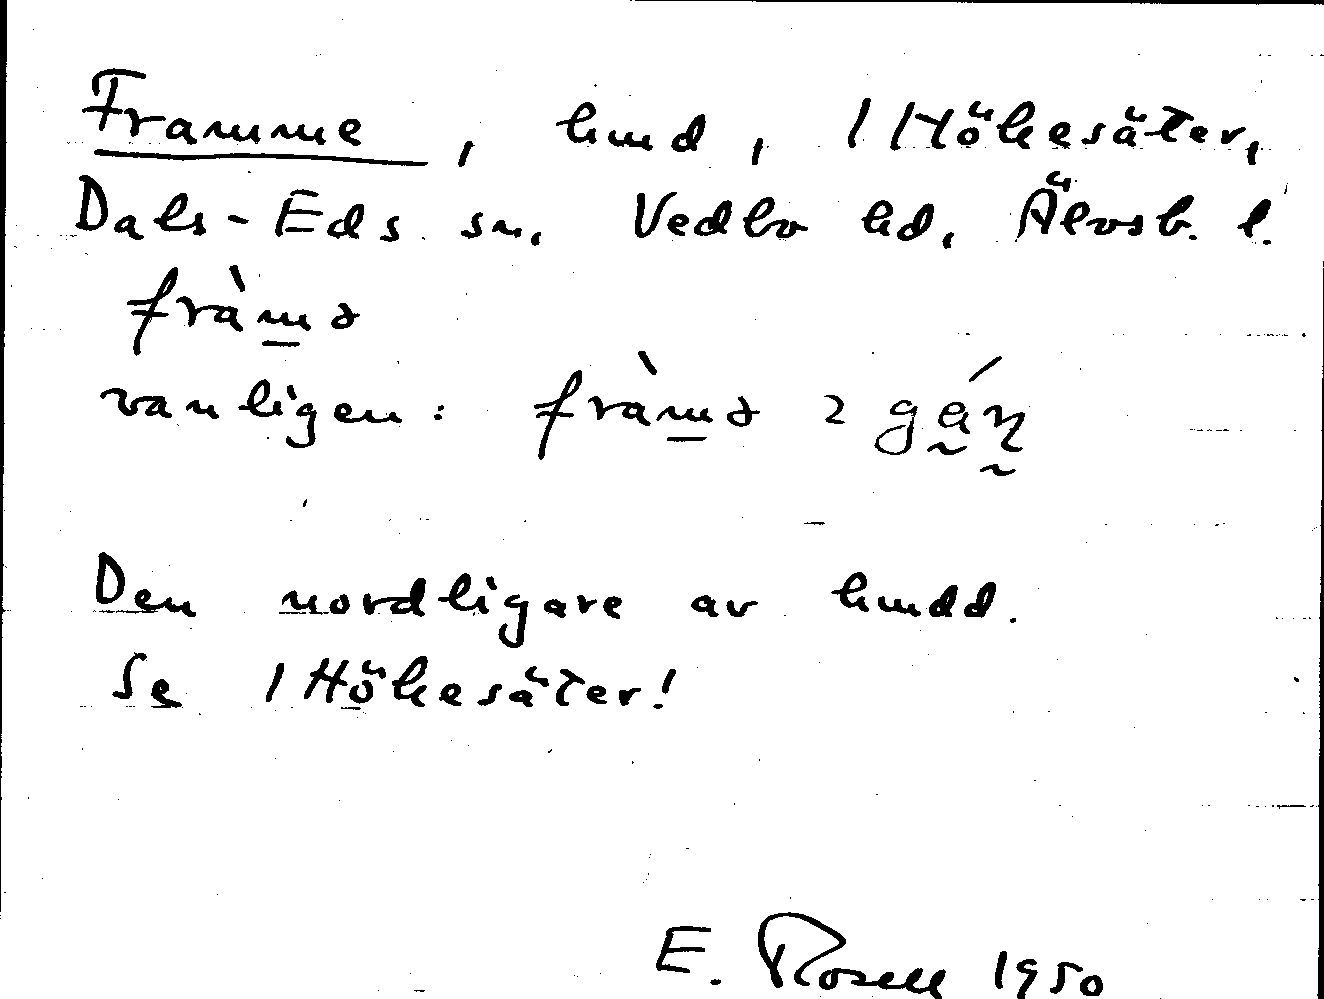 Framme, hmd, 1 Hökesäter,
Dals-Eds sn, Vedbo hd, Älvsb. l.
fràmə
vanligen: fràmə 2 gáɳ
Den nordligare av hmdd.
Se 1 Hökesäter!
E. Rosell 1950